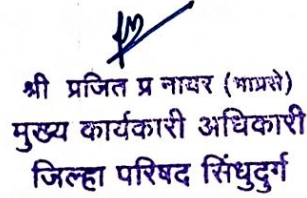 श्री प्रजित प्र नायर (भाप्रसे)
मुख्य कार्यकारी अधिकारी
जिल्हा परिषद सिंधुदुर्ग